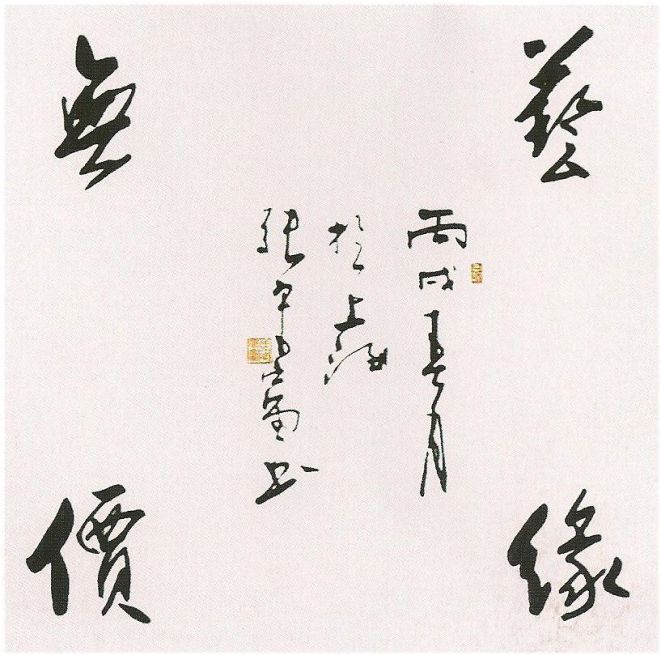 藝緣
無價
丙戌春月
於上海
張
書